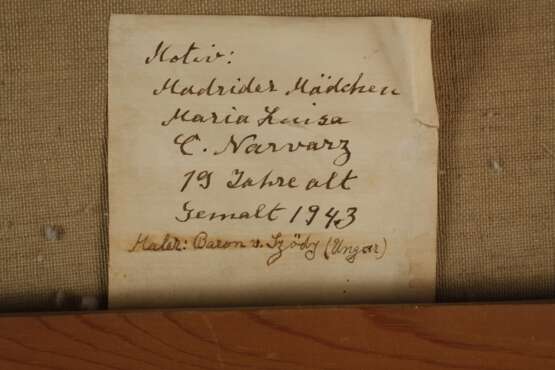 Motiv:
Madrider Mädchen
Maria Luisa
C. Narvarz
19 Jahre alt
Gemalt 1943
Maler: Baron v. Szödy (Ungar)